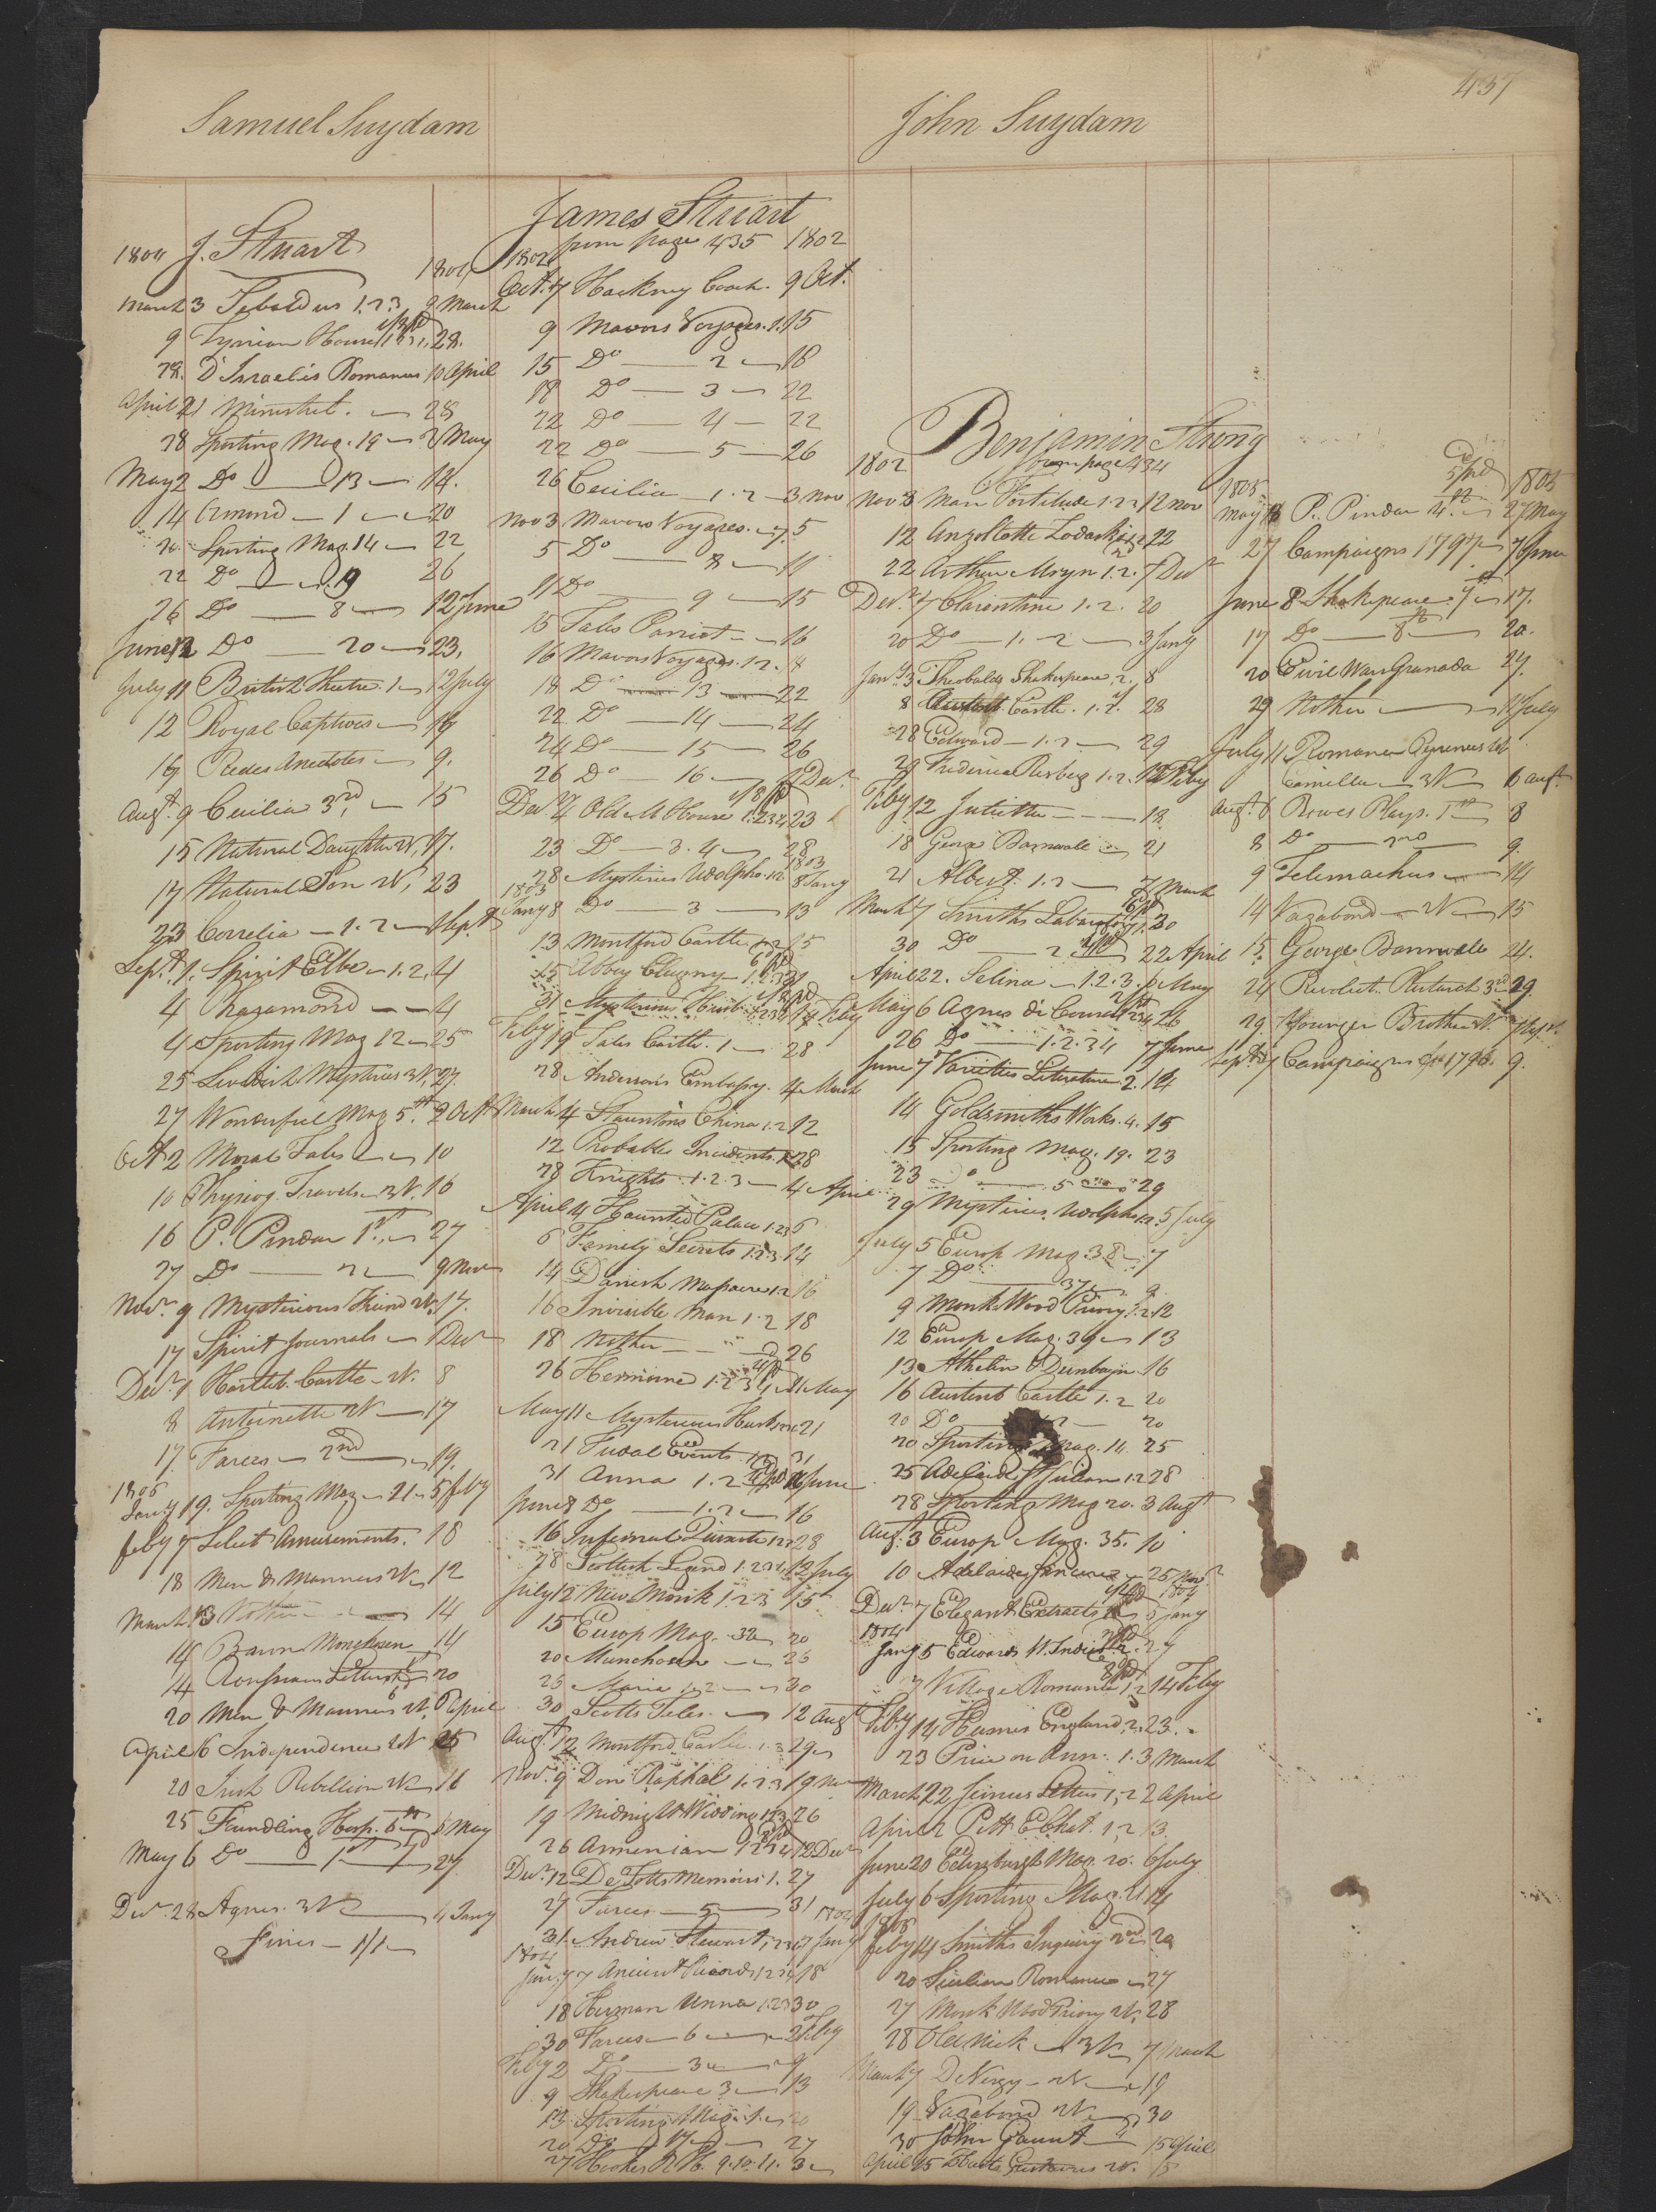 437
Samuel Suydam
John Suydam
J. Stuart
1804
March 3 Sebaldus 1.2.3 9 March
9 Tynian House 28.
28. D'Israelis Romances 10 April
April 21 Minstrel. 28
28 Sporting Mag. 19 2 May
May 2 Do 13 14.
14 Almond 1 20
20 Sporting Mag. 14 22
22 Do 19 26
26 Do 8 12 June
June 12 Do 20 23.
July 11 British Theatre. 1 12 July
12 Royal Captives
Anecdotes 9.
Augt. 9 Cecilia 3rd 15
15 Natural Daughter W, 17.
17 Natural Son W, 23
23 Correlia 1.2 1 Sept
Sept. 1. Spirit Elbe 1.2. 4
4 Rosamond 4
4 Sporting Mag 12 25
25 Mysteries 27.
27 Wonderful Mag 5th. 2 Oct
Oct 2 Moral Tales 10
10 Physiog. Travels 16
16 P. Pindar 1st. 27
27 Do 2 9 Nov
Novr. 9 Mysterious Friend W. 17.
17 Spirit Journals 1 Decr
Decr. 1 Castle W. 8
8 Antoinette W 17
17. Farces 2nd 19.
1805
Jany 19. Sporting Mag 21 5 feby
feby 7 Select Amusements. 18
18 Men & Manners W 12
March 13 Nother 14
14 Baron Munchosen 14
14 20
20 Men & Manners W. 6 April
April 6 Independence W 25
20 Irish Rebellion W 16
25 Fundling Hosp. 6th 6 May
May 6 Do 1st 27.
Decr. 28 Agnes. 3W 4 Jany
Fines 1/1
James Stuart
from page 435
1802 1802
Oct. 7 Hackney Coach. 9 Oct.
9 Mavors Voyages. 1. 15
15 Do 2 18
18 Do 3 22
22 Do 4 22
22 Do 5 26
26 Cecilia 1.2 3 Nov
Nov 3 Mavors Voyages. 7. 5
5 Do 8 11
11 Do 9 15
15 Tales Parriot 16
16 Mavors Voyages. 12. 18
18 Do 13 22
22 Do 14 24
24 Do 15 26
26 Do 16 7 Decr.
Decr 7 Old M House 1.2.3.4 23
23 Do 3.4 28
28 Mysteries Udolpho. 1.2 8 Jany
1803
Jany 8 Do 3 13
13 Montford Castle 1.2 15
15 Abbey Clugny 1.2.3
Mysterious Husb. 1.2.3.4 Feby
Feby 19 Tales Castle. 1 28
28 Andersons Embassy. 4 March
March 4 Stauntons China 1.2 12
12 Probable Incidents 1.2 28
28 Knights 1.2.3 4 April
April 4 Haunted Palace 1.2.3 6
6 Family Secrets 1.2.3 14
14 Danish Massacre 1.2 16
16 Invisible Man 1.2 18
18 Nother 26
26 Hermione 1.2.3.4 11 May
May 11 Mysterious Husb 21
21 Fudal Events 1.2 31
31 Anna 1.2 June
June 8 Do 1.2 16
16 Infernal Quixote 1.2 28
28 Scottish Legend 1.2.3.4 12 July
July 12 New Monk 1.2.3 15
15 Europ Mag. 32 20
20 Munchosen 25
25 Maria 1.2 30
30 Scotts Tales 12 Augt
Augt. 12 Montford Castle. 1.2 29
Novr. 9 Don Raphael 1.2.3 19 Nov
19 Midnight Wedding 1.2.3 26
26 Armenian 1.2.3.4 12 Decr
Decr. 12 De Totts Memoirs 1. 27
27 Farces 5 31
31. Andrew Stewart 1.2.3.4 7 Jany
1804
Jany. 7 Ancient Records 1.2.3.4 18
18 Herman Unna 1.2.3 30
30 Farces 6 2 Feby
Feby 2 Do 3 9
9 Shakespeare 3 13
13. Sporting Mag. 1. 20
20 Do 17 27
27 9.10.11. 3
Benjamin Strong
from page 434
1802
Nov 3 Man Fortitude 1.2.3 12 Nov
12 Anzoletta Zodaski 1.2 22
22 Arthur Mervyn 1.2. 7 Decr
Decr. 7 Clarentine 1.2. 20
20 Do 1.2 3 Jany
Jany 3 Theobalds Shakespeare. 2. 8
8 Castle. 1.2. 28
28 Edward 1.2 29
29 Frederica Risberg 1.2. 12 Feby
Feby 12 Juliette 18
18 George Barnwale 21
21 Albert. 1.2 7 March
March 7 Smiths Labaratory 1. 30
30 Do 2 22 April
April 22. Selina 1.2.3. 6 May
May 6 Agnes di Courci 1.2.3.4 26
26 Do 1.2.3.4 7 June
June 7 Varieties Literature 2. 14
14 Goldsmiths Works. 4. 15
15 Sporting Mag. 19. 23
23 Do 5 29
29 Mysteries Udolpho 1.2. 5 July
July 5 Europ Mag. 38 7
7 Do 37 9
9 Monk Wood Priory 1.2. 12
12 Europ Mag. 39 13
13 Athelin & Dunbayn 16
16 Austens Castle 1.2 20
20 Do 1.2 20
20 Sporting Mag. 11. 25
25 Adelaide 1.2 28
28 Sporting Mag 20. 3 Augt
Augt. 3 Europ Mag. 35. 10
10 Adelaide 25 Novr
Decr. 7 Elegant Extracts 5 Jany
1804
Jany 5 Edwards W. Indies 2. 27
Village Romance 1.2 14 Feby
Feby 14 Humes England. 2. 23.
23 Price on Ann. 1. 3 March
March 22 Junius Letters 1,2 2 April
April 2 Pitt E Chat. 1,2 13
June 20 Edinsburgh Mag. 20. 6 July
July 6 Sporting Mag. 21 14
1805
feby 14 Smiths Inquiry 2nd 20
20 Sicilian Romance 27
27 Monk Wood Priory W. 28
28 Old Nick 3W 7 March
March 7 D Nergy W 19
19 Vagabond W 30
30 John Gaunt 15 April
April 15 Gustavus W. 15
1805 1805
May 16 P. Pindar 4. 27 May
27 Campaigns 1797 7 June
June 8 Shakespeare. 7th 17.
17 Do 8th 20.
20 Civil Wars Granada 29.
29 Nother 11 July
July 11. Romance Pyrenees W
Camella 3W 6 Augt
Augt. 6 Rowes Plays. 1st 8
8 Do 2nd 9.
9 Telemachus 14
14 Vagabond W 15
15. George Barnwele 24.
24 Plutarch 3rd 29.
29. Younger Brother W. 7 Sept.
Sept 7 Campaigns 1796. 9.